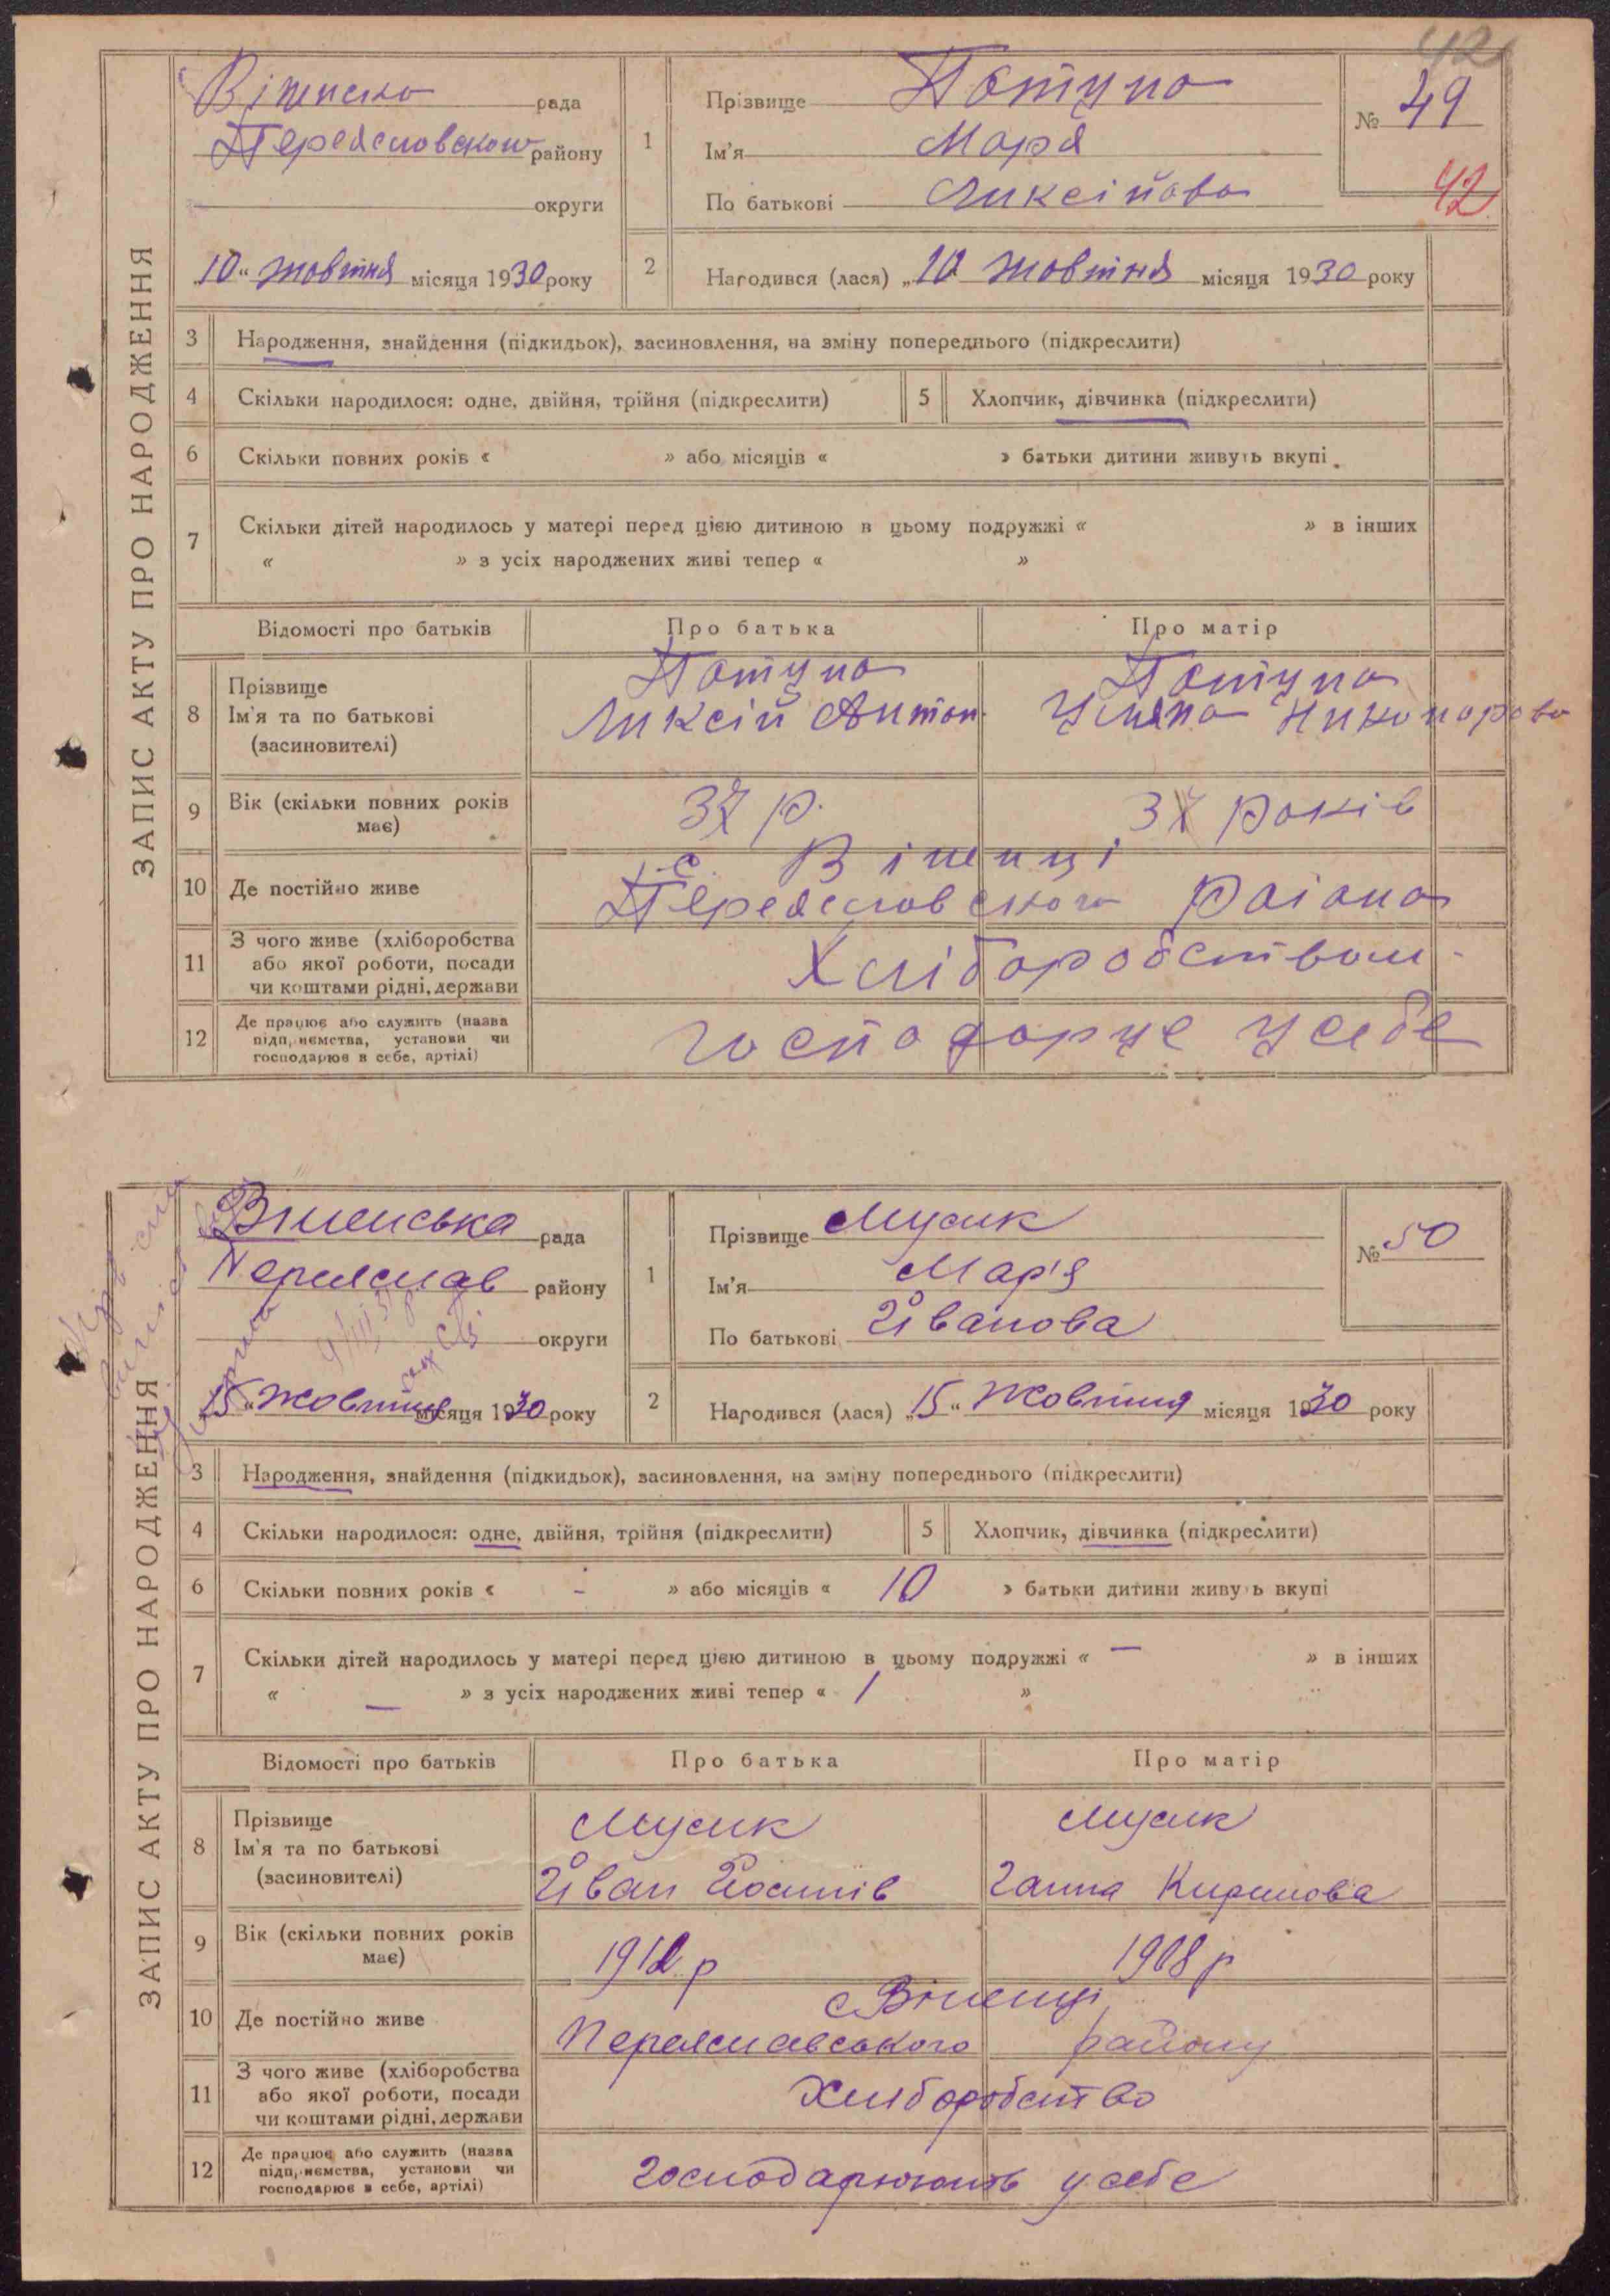 42
ЗАПИС АКТУ ПРО НАРОДЖЕННЯ
Віненска рада
Переяславського району
округи
„10“ жовтня місяця 1930 року
1
Прізвище Потупа
Ім'я Маря
По батькові Аликсійова
№ 49
42
2
Народився (лася) „10 жовтня місяця 1930 року
3 Народження, знайдення (підкидьок), засиновлення, на зміну попереднього (підкреслити)
4 Скільки народилося: одне, двійня, трійня (підкреслити) 5 Хлопчик, дівчинка (підкреслити)
6 Скільки повних років « » або місяців « » батьки дитини живуть вкупі
7 Скільки дітей народилось у матері перед цією дитиною в цьому подружжі « » в інших
« » з усіх народжених живі тепер « »
Відомості про батьків Про батька Про матір
8 Прізвище
Ім'я та по батькові
(засиновителі)
Потупа
Аликсій Антон
Потупа
Уляна Никонорова
9 Вік (скільки повних років має)
37 р.
років
10 Де постійно живе
с. Віненці
Переяславського раіона
11 З чого живе (хліборобства або якої роботи, посади чи коштами рідні, держави
Хліборобством
12 Де працює або служить (назва підприємства, установи чи господарює в себе, артілі)
господорує у себе
ЗАПИС АКТУ ПРО НАРОДЖЕННЯ
Віненська рада
Переяслав району
округи
„15“ Жовтня місяця 1930 року
1
Прізвище Мусик
Ім'я Мар'я
По батькові Іванова
№ 50
2
Народився (лася) „15“ Жовтня місяця 1930 року
3 Народження, знайдення (підкидьок), засиновлення, на зміну попереднього (підкреслити)
4 Скільки народилося: одне, двійня, трійня (підкреслити) 5 Хлопчик, дівчинка (підкреслити)
6 Скільки повних років « - » або місяців « 10 » батьки дитини живуть вкупі
7 Скільки дітей народилось у матері перед цією дитиною в цьому подружжі « — » в інших
« — » з усіх народжених живі тепер « 1 »
Відомості про батьків Про батька Про матір
8 Прізвище
Ім'я та по батькові
(засиновителі)
Мусик
Іван Йосипів
Мусик
Ганна Кирилова
9 Вік (скільки повних років має)
1912 р
1908 р
10 Де постійно живе
с Віненці
Переяславського району
11 З чого живе (хліборобства або якої роботи, посади чи коштами рідні, держави
Хліборобство
12 Де працює або служить (назва підприємства, установи чи господарює в себе, артілі)
господарюють у себе